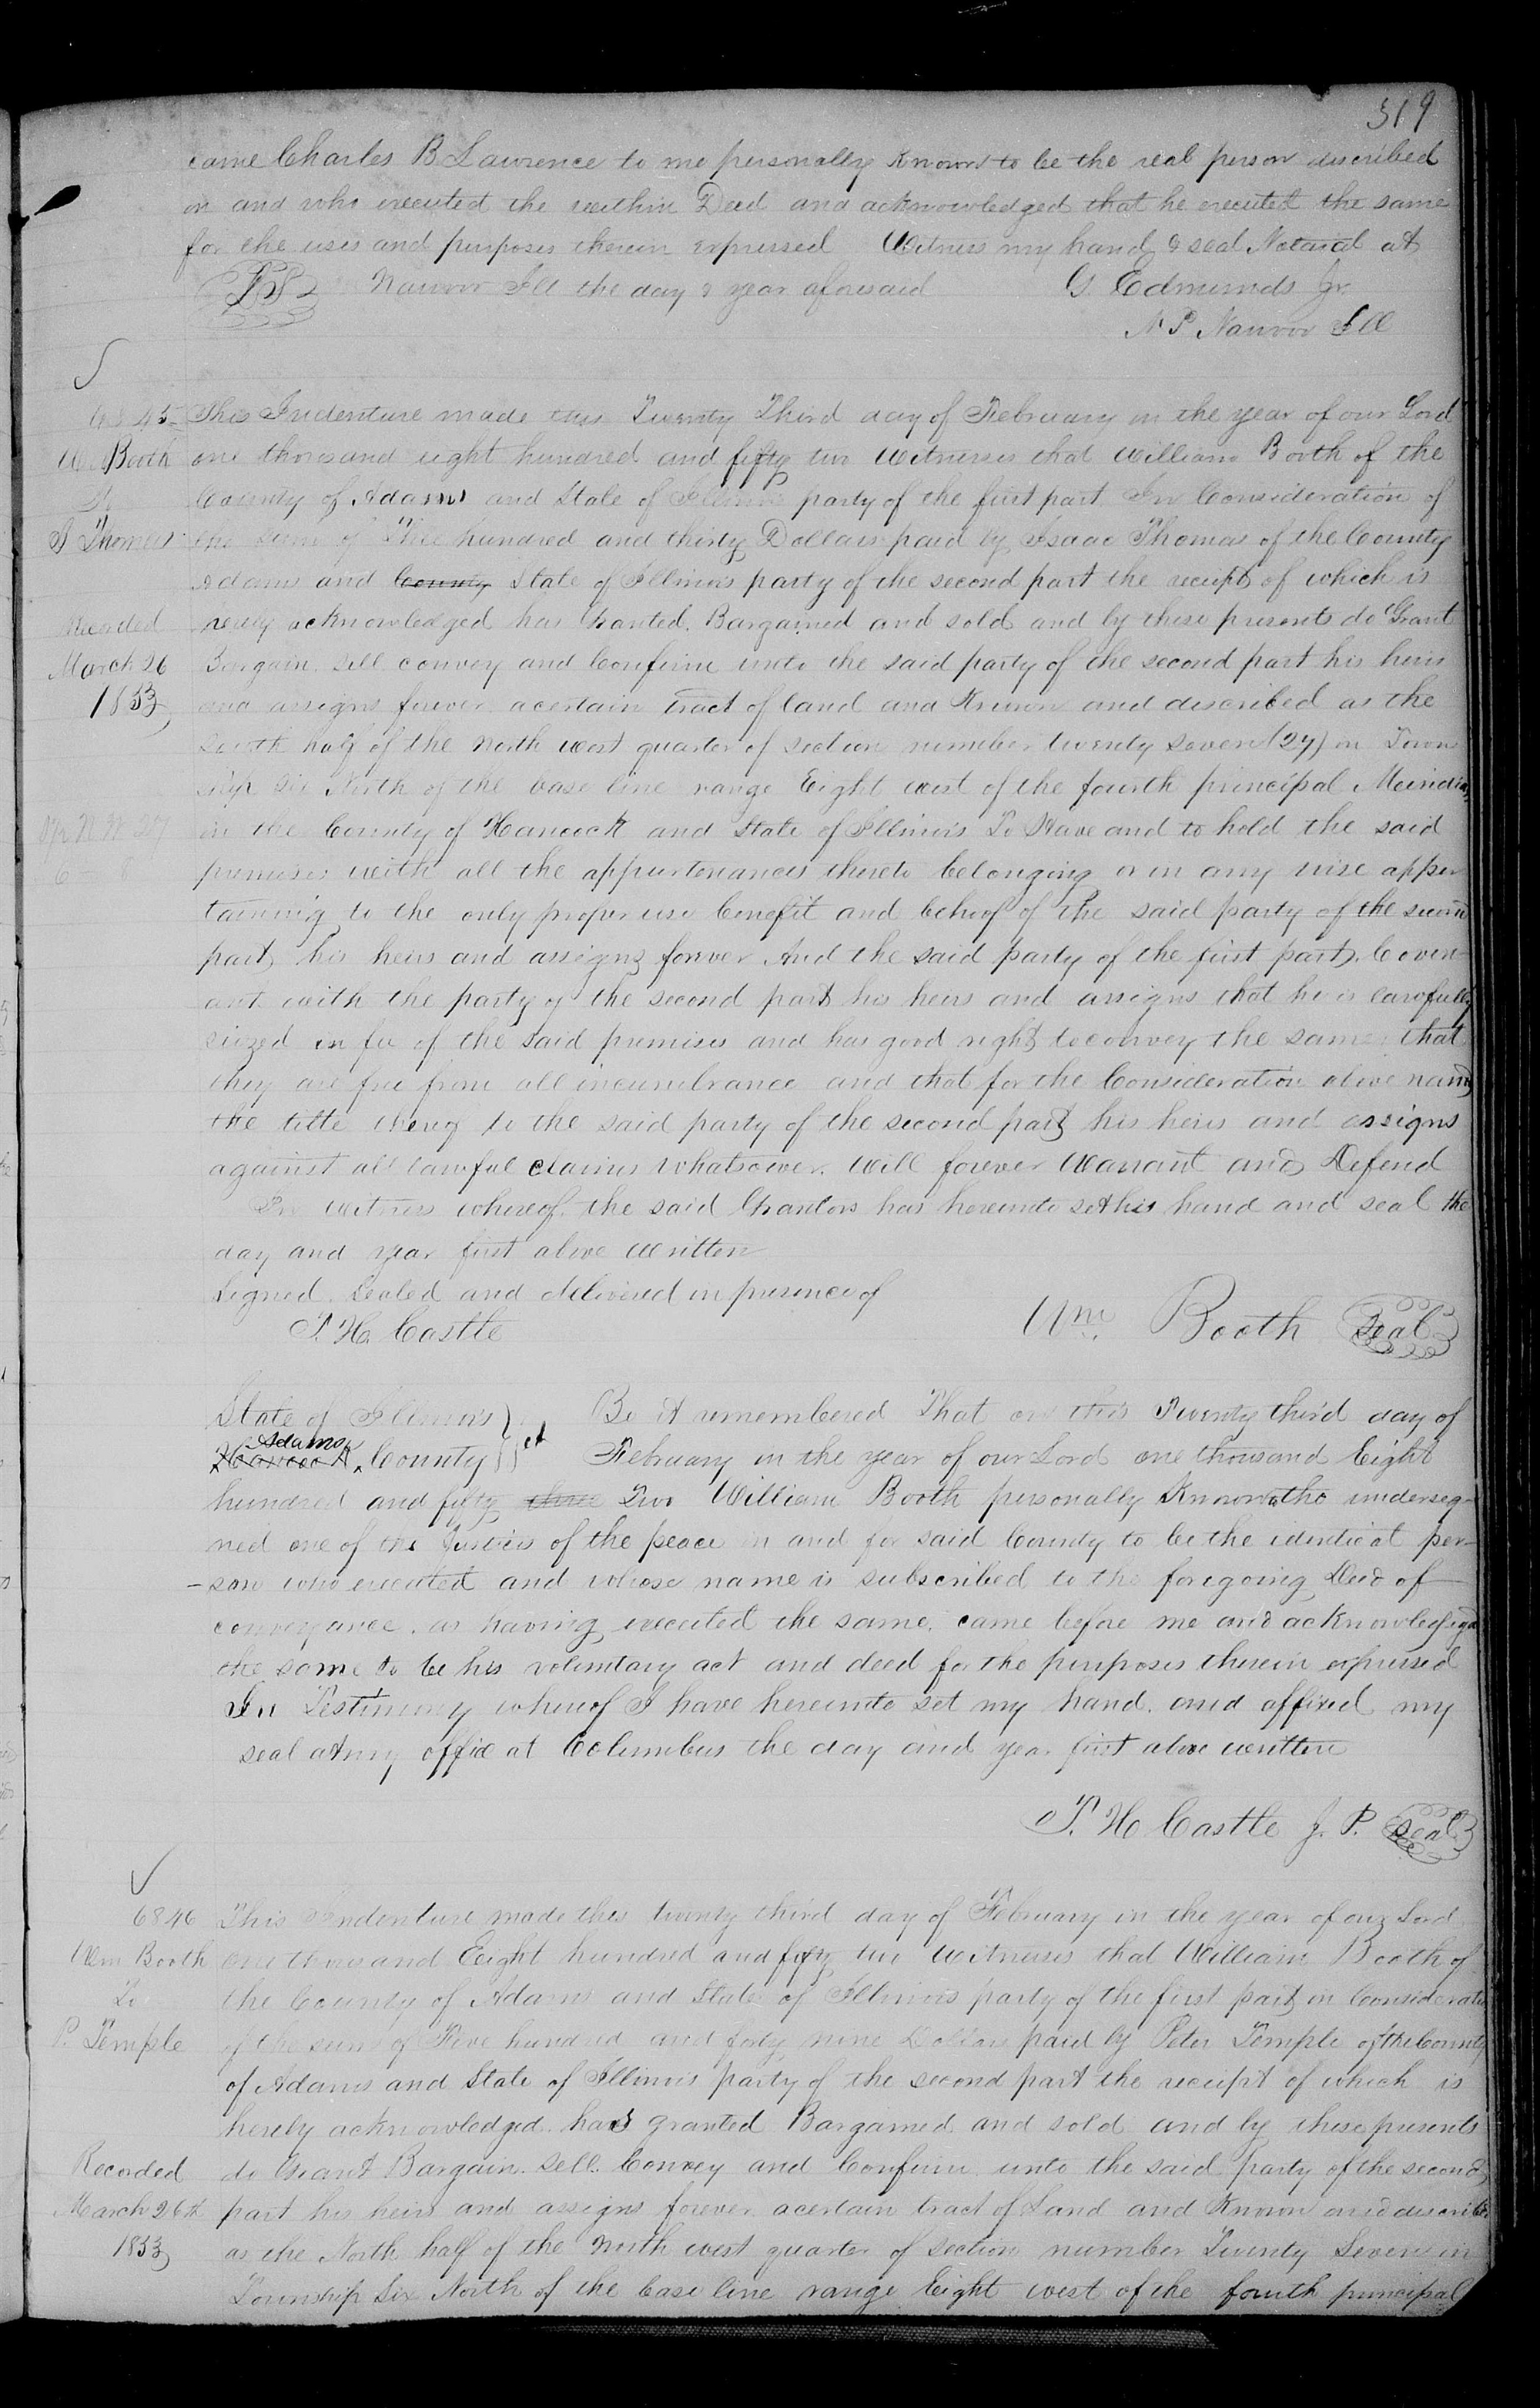 319
came Charles B Lawrence to me personally known to be the real person discribed
in and who executed the within Deed and acknowledged that he executed the same
for the uses and purposes therein expressed Witness my hand & seal Notarial at
Nauvoo Ill the day & year aforesaid G Edmunds Jr.
N P Nauvoo Ill
6845
W. Booth
To
I Thomas
Recorded
March 26
1853
N W 27
6 8
This Indenture made this Twenty Third day of February in the year of our Lord
one thousand eight hundred and fifty two Witnesses that William Booth of the
County of Adams and State of Illinois party of the first part In Consideration of
the sum of Three hundred and thirty Dollars paid by Isaac Thomas of the County
Adams and County State of Illinois party of the second part the receipt of which is
acknowledged has Granted. Bargained and sold and by these presents do Grant
Bargain. Sell convey and Confirm unto the said party of the second part his heirs
and assigns forever a certain tract of land and Known and discribed as the
South half of the North west quarter of section number twenty Seven (27) in Town
ship Six North of the base line range Eight west of the fourth principal Meridian
in the County of Hancock and State of Illinois To Have and to hold the said
premises with all the appurtenances thereto belonging or in any wise apper
taining to the only proper use benefit and behoof of the said party of the second
part his heirs and assigns forever And the said party of the first part. Coven
ant with the party of the second part his heirs and assigns that he is lawfully
siezed in fee of the said premises and has good right to convey the same that
they are free from all incumbrance and that for the Consideration above named
the title thereof to the said party of the second part his heirs and assigns
against all lawful claims whatsoever. Will forever Warrant and Defend
In witness whereof. the said Grantors has hereunto set his hand and seal the
day and year first above Written
Signed Sealed and delivered in presence of
T. H. Castle Wm Booth Seal
State of Illinois Be it remembered That on this Twenty third day of
Hancock Adams County February in the year of our Lord one thousand Eight
hundred and fifty three Two William Booth personally Known the undersig-
ned one of the Justices of the peace in and for said County to be the identical per-
-son who executed and whose name is subscribed to the foregoing Deed of
conveyance. as having executed the same. came before me and acknowledged
the same to be his voluntary act and deed for the purposes therein expressed
In Testimony whereof I have hereunto set my hand. and affixed my
seal at my office at Columbus the day and year first above written
T. H Castle J. P. Seal
6846
Wm Booth
To
P. Temple
Recorded
March 26th
1853
This Indenture made this twenty third day of February in the year of our Lord
one thousand Eight hundred and fifty two Witnesses that William Booth of
the County of Adams and State of Illinois party of the first part in Consideration
of the sum of Five hundred and forty nine Dollars paid by Peter Temple of the County
of Adams and State of Illinois party of the second part the receipt of which is
hereby acknowledged. has granted Bargained and sold and by these presents
do Grant Bargain. Sell. Convey and Confirm unto the said party of the second
part his heirs and assigns forever a certain tract of Land and Known and discribed
as the North half of the North west quarter of section number Twenty Seven in
Township Six North of the base line range Eight west of the fourth principal